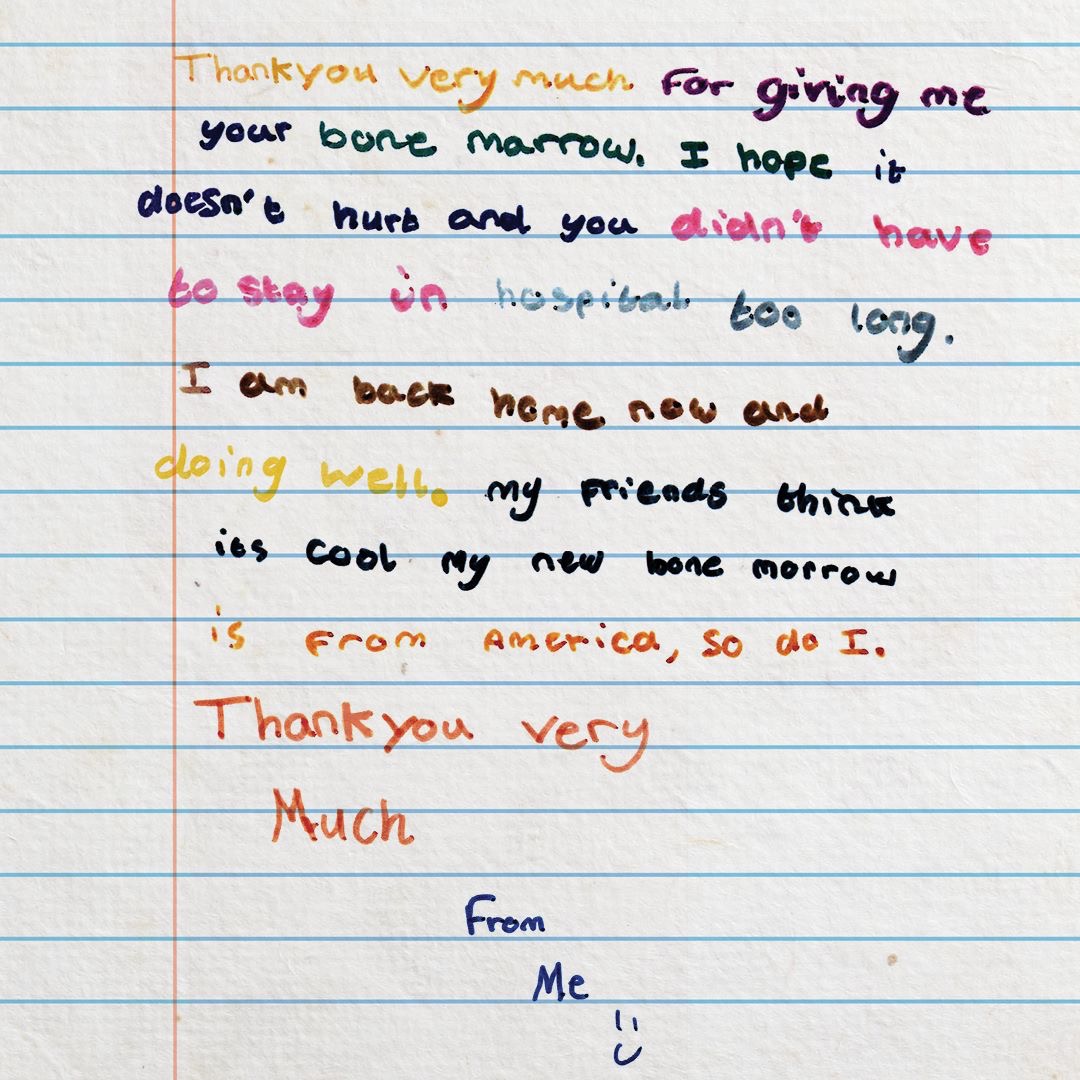 Thankyou very much For giving me
your bone marrow. I hope it
doesn't hurt and you didn't have
to stay in hospital too long.
I am back home now and
doing well. my friends think
its cool my new bone morrow
is from America, so do I.
Thankyou very
Much
From
Me